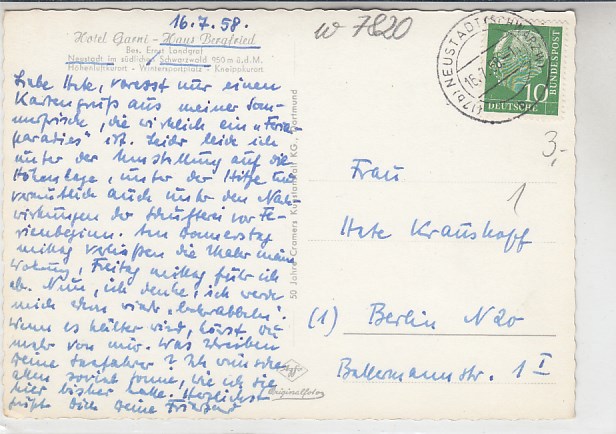 16.7.58.
w 7820
Hotel Garni - Haus Bergfried
Bes. Ernst Landgraf
Neustadt im südlichen Schwarzwald 950 m ü.d.M.
Höhenluftkurort - Wintersportplatz - Kneippkurort
Liebe Hete, vorerst nur einen
Kartengruß aus meiner Som-
merfrische, die wirklich ein „Ferien
paradies" ist. Leider leide ich
unter der Umstellung auf die
Höhenlage, unter der Hitze und
vermutlich auch unter den Nach-
wirkungen der vor Fe-
rienbeginn. Am Donnerstag
mittag verließen die meine
Wohnung, Freitag mittag fuhr ich
ab. Nun, ich denke, ich werde
mich dann wieder
Wenn es kühler wird, hörst Du
mehr von mir. Was schreiben
Deine ? Ich wünsche
allen soviel Sonne, wie ich sie
hier bisher hatte. Herzlichst
grüßt Dich Deine
50 Jahre Cramers Kunstanstalt KG., Dortmund
Originalfoto
(17b) NEUSTADT (SCHWARZW)
16.7.58
DEUTSCHE BUNDESPOST
10
3,-
1
Frau
Hete Krauskopf
(1) Berlin N 20
Bellermannstr. 1 I